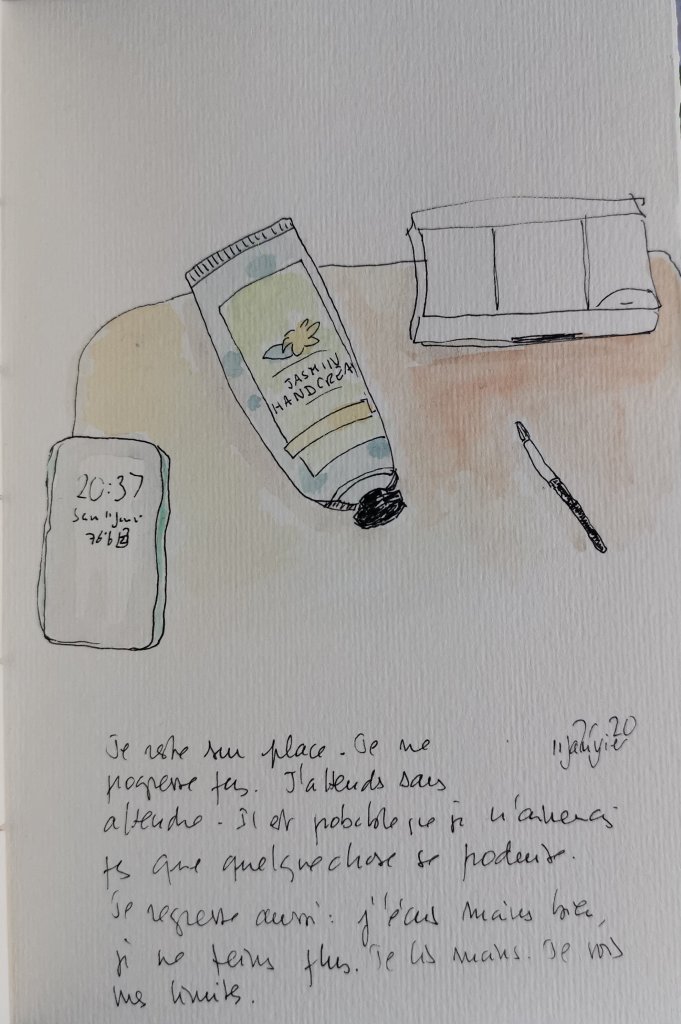 20:37
JASMIN
HANDCREA
20
11 janvier
Je reste sur place. Je ne
progresse pas. J'attends sans
attendre. Il est probable que je n'aimerais
pas que quelque chose se produise.
Je regresse aussi : j'écris moins bien,
je ne peins plus. Je lis moins. Je vois
mes limites.